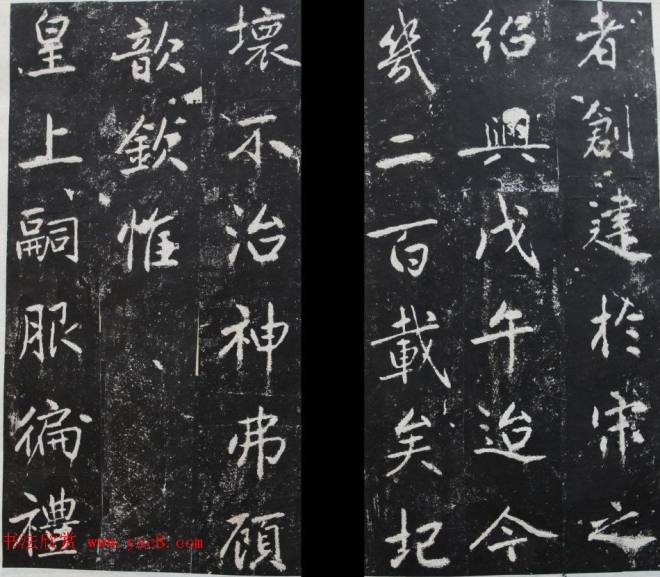 者創建於宋之
紹興戊午迨今
幾二百載矣圮
壞不治神弗顧
歆欽惟
皇上嗣服徧禮
书法欣赏 www.yac8.com